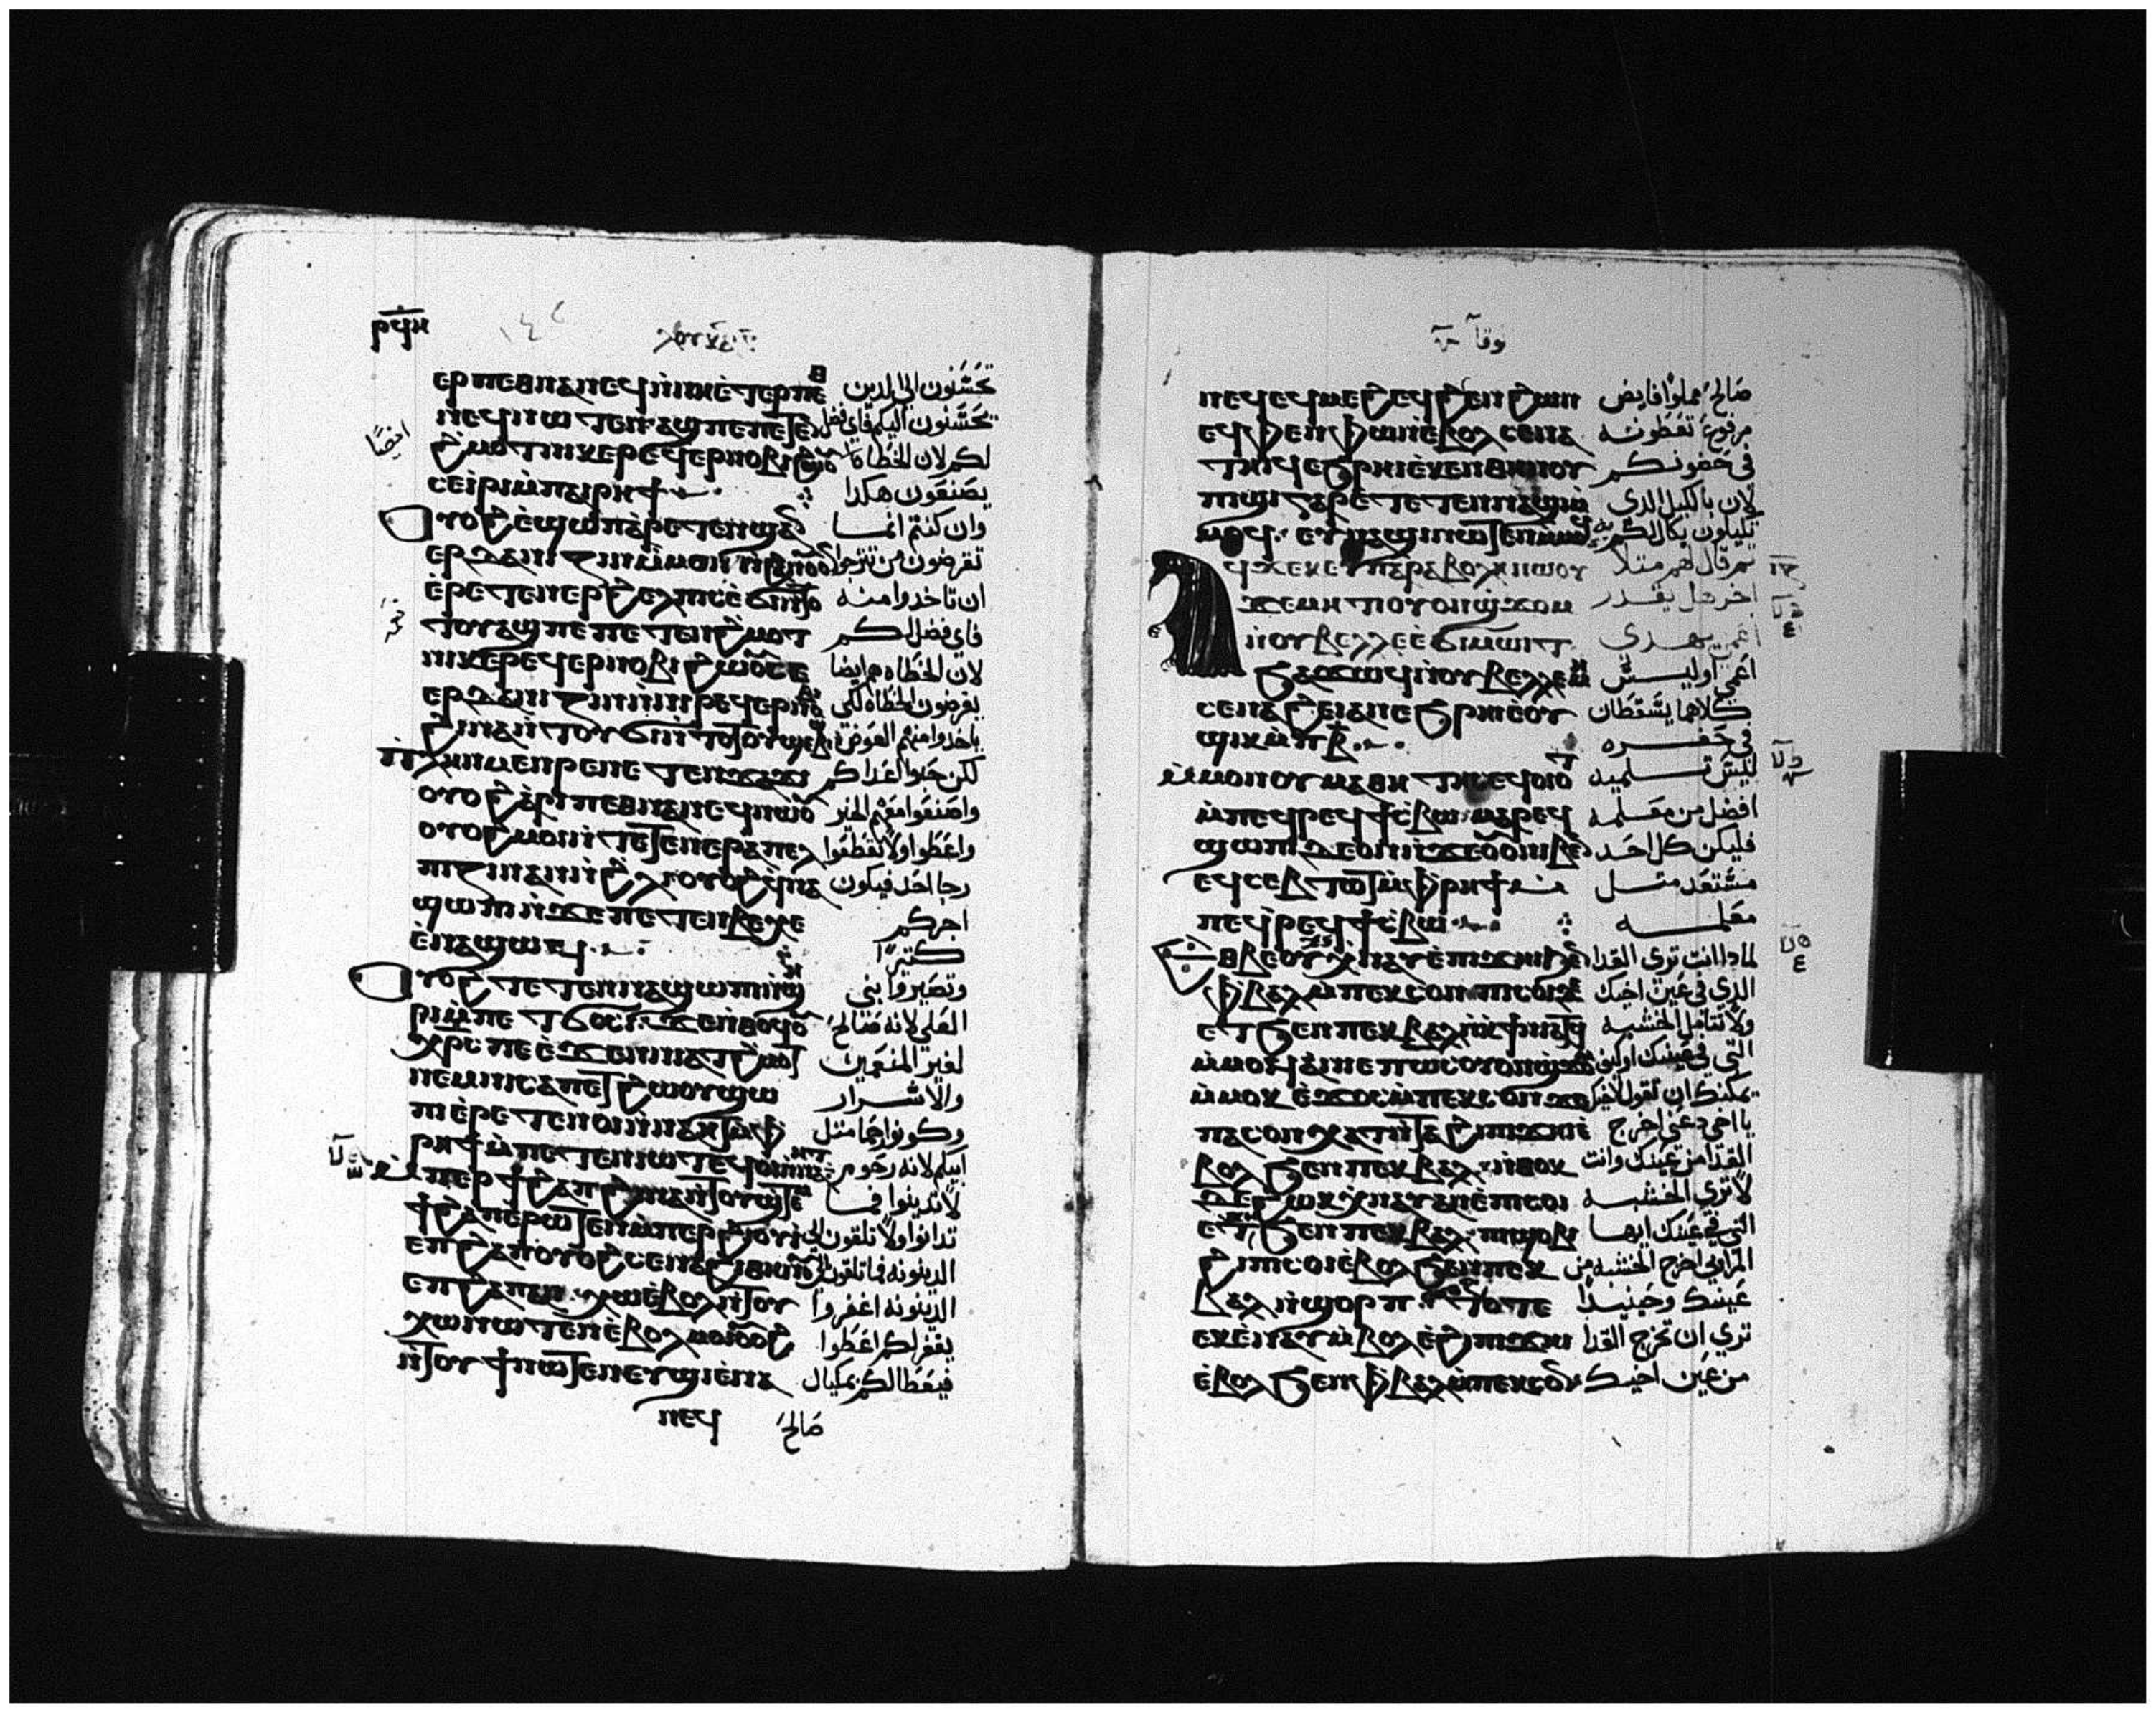 ⲣϥⲏ ⲗⲟⲩⲕⲁⲛ
ⲉⲣⲡⲉⲑⲛⲁⲛⲉϥⲛ̀ⲛⲏⲉ̀ⲧⲉⲣⲡⲉⲑ تحسنون الى الدين
ⲛⲁⲛⲉϥⲛⲱⲧⲉⲛ ⲁϣⲡⲉⲡⲉⲧⲉⲛ يحسنون اليكم فاى فضل
ϩⲙⲟⲧ ⲛⲓⲕⲉⲣⲉϥⲉⲣⲛⲟⲃⲓϩⲱⲟⲩ لكم لان الخطاه ايضًا
ⲥⲉⲓ̀ⲣⲓⲙ̀ⲡⲁⲓⲣⲏϯ يصنعون هكدا
ⲟⲩⲟϩⲉ̀ϣⲱⲡⲁ̀ⲣⲉⲧⲉⲛϣⲁⲛ وان كنتم انما
ⲉⲣⲇⲁⲛⲓⲍⲓⲛ تقرضون من ترجوا
ⲉ̀ⲣⲉⲧⲉⲛⲉⲣϩⲉⲗⲡⲓⲥⲉ̀ϭⲓⲛⲧⲟ ان تاخدوا منه
ⲧⲟⲩⲁϣⲡⲉⲡⲉⲧⲉⲛϩⲙⲟⲧ فاى فضل لكم
ⲛⲓⲕⲉⲣⲉϥⲉⲣⲛⲟⲃⲓϩⲱⲟⲩⲥⲉ لان الخطاه ايضا
ⲉⲣⲇⲁⲛⲓⲍⲓⲛⲛ̀ⲛⲓⲣⲉϥⲉⲣⲛⲟⲃⲓ يقرضون الخطاه لكى
ϩⲓⲛⲁⲛ̀ⲧⲟⲩϭⲓⲛ̀ⲧⲟⲧⲟⲩ ياخدوا منهم العوض
ⲡⲗⲏⲛⲙⲉⲛⲣⲉⲛⲉⲧⲉⲛϫⲁϫⲓ لكن حبوا اعداكم
ⲟⲩⲟϩⲁ̀ⲣⲓⲡⲉⲑⲛⲁⲛⲉϥⲛⲱⲟⲩ واصنعوا معهم الخير
ⲟⲩⲟϩⲙⲟⲓⲛ̀ⲧⲉⲧⲉⲛⲉⲣⲁⲡⲉⲗ واعطوا ولا تقطعوا
ⲡⲓⲍⲓⲛⲁⲛⲛ̀ϩⲗⲓⲟⲩⲟϩⲉϥⲛⲁ رجا احد فيكون
ϣⲱⲡⲓⲛ̀ϫⲉⲡⲉⲧⲉⲛⲃⲉⲭⲉ اجركم
ⲉ̀ⲛⲁϣⲱϥ كتيرًا
ⲟⲩⲟϩ ⲧⲉⲧⲉⲛⲛⲁϣⲱⲡⲓⲛ̀ϣⲏ وتصيروا بني
ⲣⲓⲙ̀ⲡⲉⲧϭⲟⲥⲓ ϫⲉⲛ̀ⲑⲟϥⲟⲩ العلي لانه صالح
ⲭⲣⲥ ⲡⲉⲉ̀ϫⲉⲛⲛⲓⲁⲧϩⲙⲟⲧ لغير المنعمين
ⲛⲉⲙⲛⲓⲥⲁⲙⲡⲉⲧϩⲱⲟⲩϣⲱ والاشرار
ⲡⲓⲉ̀ⲣⲉⲧⲉⲛⲟⲓⲛ̀ⲛⲁⲏⲧⲙ̀ⲫ وكونوا رحما متل
ⲣⲏϯⲙ̀ⲡⲉⲧⲉⲛⲓⲱⲧ ⲉϥⲟⲓⲛ̀ⲛⲁⲏⲧ ابيكم لانه رحوم
ⲙ̀ⲡⲉⲣϯϩⲁⲡ ϩⲓⲛⲁⲛ̀ⲧⲟⲩϣⲧⲉⲙ لا تدينوا فما
ϯϩⲁⲡⲉⲣⲱⲧⲉⲛⲙ̀ⲡⲉⲣϩⲓⲟⲩⲓ تدانوا ولا تلقون الى
ⲉⲡϩⲁⲡⲟⲩⲟϩⲥⲉⲛⲁϩⲓⲑⲏⲛⲟⲩ الدينونه فما تلقون الى
ⲉⲡϩⲁⲡⲁⲛ ⲭⲱⲉ̀ⲃⲟⲗⲛ̀ⲧⲟⲩ الدينونه اغفروا
ⲭⲱⲛⲱⲧⲉⲛⲉ̀ⲃⲟⲗⲙⲟⲓⲟⲩⲟϩ يغفر لكم اعطوا
ⲛ̀ⲧⲟⲩϯⲛⲱⲧⲉⲛⲉⲩϣⲓⲉ̀ⲛⲁ فيعطا لكم بمكيال
ⲛⲉϥ صالح
لوقا
ⲛⲉϥⲉϥⲙⲉϩⲉϥϩⲉⲛϩⲱⲛ صالح مملوا فايض
ⲉϥⲫⲉⲛⲫⲱⲛⲉ̀ⲃⲟⲗ ⲥⲉⲛⲁ مرفوع تعطونه
ⲧⲏⲓϥⲉϧⲣⲏⲓⲉ̀ⲕⲉⲛⲑⲏⲛⲟⲩ في حضونكم
ⲡⲓϣⲓⲅⲁⲣⲉ̀ⲧⲉⲧⲉⲛⲛⲁϣⲓⲙ̀ لان بالكيل الدى
ⲙⲟϥ ⲉⲩⲛⲁϣⲓⲛⲱⲧⲉⲛⲙ̀ⲙⲟϥ تكيلون يكال لكم به
ⲁϥϫⲉⲕⲉⲡⲁⲣⲁⲃⲟⲗⲏⲛⲱⲟⲩ ثم قال لهم متلا
ϫⲉⲙⲏⲧⲓⲟⲩⲟⲛϣϫⲟⲙ اخر هل يقدر
ⲛ̀ⲟⲩⲃⲉⲗⲗⲉⲉ̀ϭⲓⲙⲱⲓⲧ اعمى يهدى
ϧⲁϫⲱϥⲛ̀ⲟⲩⲃⲉⲗⲗⲉⲙⲏ اعمى اوليس
ⲥⲉⲛⲁϩⲉⲓⲁⲛⲉϧⲣⲏⲓⲉ̀ⲟⲩ كلاهما يسقطان
ϣⲓⲕⲙ̀ⲡⲃ̅ في حفره
ⲙ̀ⲙⲟⲛⲟⲩⲙⲁⲑⲏⲧⲏⲥⲉϥⲟⲓⲟ ليس تلميد
ⲙ̀ⲡⲉϥⲣⲉϥϯⲥ̀ⲃⲱ ⲙⲁⲣⲉϥ افضل من معلمه
ϣⲱⲡⲓϫⲉⲟⲩⲟⲛⲛⲓⲃⲉⲛ فليكن كل احد
ⲉϥⲥⲉⲃⲧⲱⲧⲙ̀ⲫⲣⲏϯⲙ̀ مستعد متل
ⲡⲉϥⲣⲉϥϯⲥ̀ⲃⲱ معلمه
ⲉⲑⲃⲉⲟⲩⲭⲛⲁⲩⲉ̀ⲡⲓϫⲏⲓ لمادا انت ترى القدا
ⲫⲃⲁⲗⲙ̀ⲡⲉⲕⲥⲟⲛ ⲡⲓⲥⲟⲓ الدى في عين اخيك
ⲉⲧϧⲉⲛⲡⲉⲕⲃⲁⲗⲛ̀ⲕϯⲛ̀ⲓⲁⲧⲕ ولا تتامل الخشبه
ⲙ̀ⲙⲟϥⲁⲛⲓⲉⲡⲱⲥⲟⲩⲟⲛϣϫⲟⲙ التى في عينك او كيف
ⲙ̀ⲙⲟⲕ ⲉ̀ϫⲟⲥⲙ̀ⲡⲉⲕⲥⲟⲛϫⲉ يمكنك ان تقول لاخيك
ⲡⲁⲥⲟⲛⲭⲁⲧⲛ̀ⲧⲁϩⲓⲡⲓϫⲏⲓⲉ̀ يا اخى دعنى اخرج
ⲃⲟⲗϧⲉⲛⲡⲉⲕⲃⲁⲗ ⲛ̀ⲑⲟⲕ القدا من عينك وانت
ⲇⲉϩⲱⲕⲭⲛⲁⲩⲁⲛⲉ̀ⲡⲓⲥⲟⲓ لا ترى الخشبه
ⲉⲧϧⲉⲛⲡⲉⲕⲃⲁⲗ ⲡⲓϣⲟⲃⲓ التى في عينك ايها
ϩⲓⲡⲓⲥⲟⲓⲉ̀ⲃⲟⲗϧⲉⲛⲡⲉⲕ المرايي اخرج الخشبه من
ⲃⲁⲗⲛ̀ϣⲟⲣⲡ ⲧⲟⲧⲉ عينك وحينيدًا
ⲉⲕⲉ̀ⲛⲁⲩⲙ̀ⲃⲟⲗⲉ̀ϩⲓⲡⲓϫⲏⲓ ترى ان تخرج القدا
ⲉ̀ⲃⲟⲗϧⲉⲛⲫⲃⲁⲗⲙ̀ⲡⲉⲕⲥⲟⲛ من عين اخيك